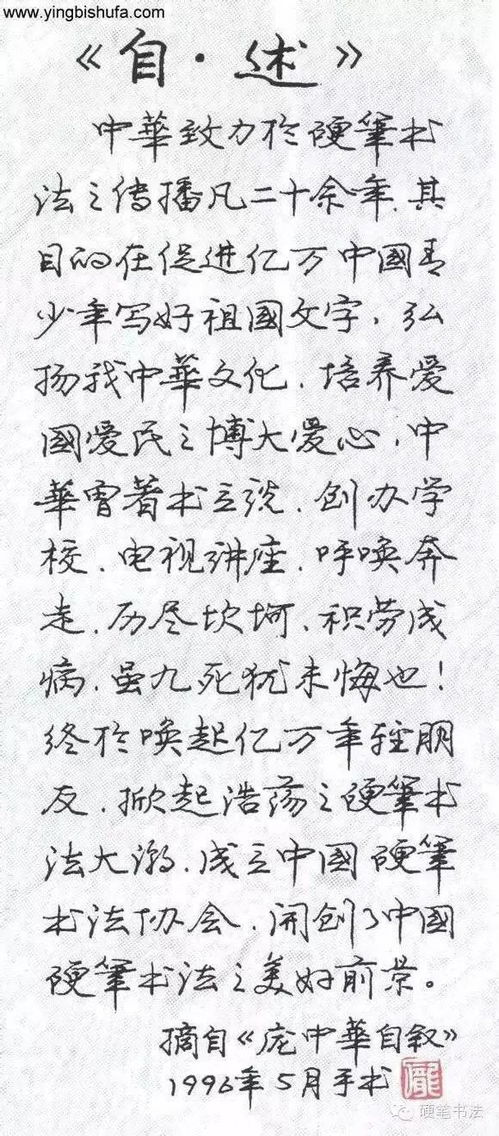 www.yingbishufa.com
《自·述》
中華致力於硬筆书
法之传播凡二十余年.其
目的在促进亿万中國青
少年写好祖國文字,弘
扬我中華文化.培养爱
國爱民之博大爱心,中
華曾著书立说.创办学
校.电视讲座.呼唤奔
走.历尽坎坷.积劳成
病.虽九死犹未悔也!
终於唤起亿万年轻朋
友.掀起浩荡之硬筆书
法大潮.成立中國硬筆
书法协会.開创了中國
硬筆书法之美好前景。
摘自《庞中華自叙》
1996年5月手书
龐
硬笔书法